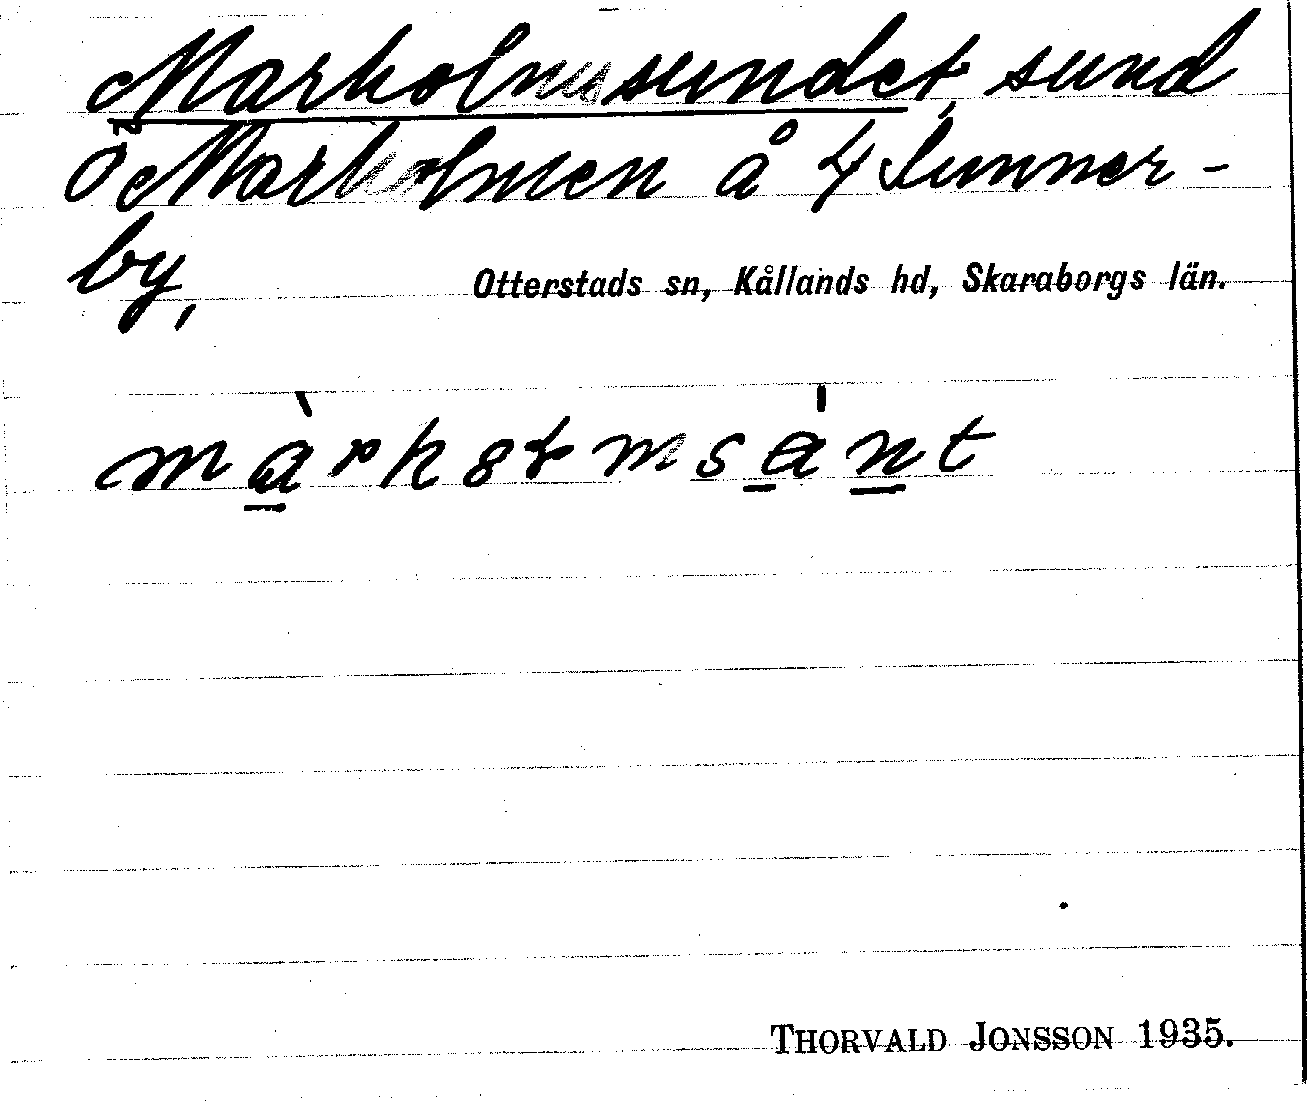 Markolmsundet, sund
ö Markolmen å 4 Sunner-
by,
Otterstads sn, Kållands hd, Skaraborgs län.
THORVALD JONSSON 1935.